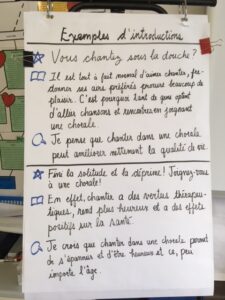 Exemples d'introductions
Vous chantez sous la douche ?
Il est tout à fait normal d'aimer chanter, fre-
donner ses airs préférés procure beaucoup de
plaisir. C'est pourquoi tant de gens optent
d'allier chansons et rencontres en joignant
une chorale.
Je pense que chanter dans une chorale
peut améliorer nettement la qualité de vie.
Finie la solitude et la déprime ! Joignez-vous
à une chorale !
En effet, chanter a des vertus thérapeu-
tiques, rend plus heureux et a des effets
positifs sur la santé.
Je crois que chanter dans une chorale permet
de s'épanouir et d'être heureux et ce, peu
importe l'âge.